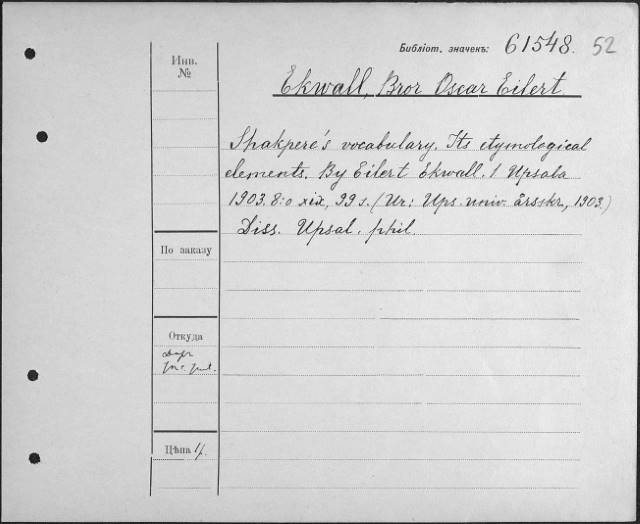 Библіот. значекъ: 61548. 52
Инв.
№
Ekwall, Bror Oscar Eilert
Shakpere's vocabulary. Its etymological
elements. By Eilert Ekwall. 1 Upsala
1903. 8:o xix, 99 s. (Ur: Ups. univ. årsskr., 1903.)
Diss. Upsal. phil.
По заказу
Откуда
Цѣна 4.